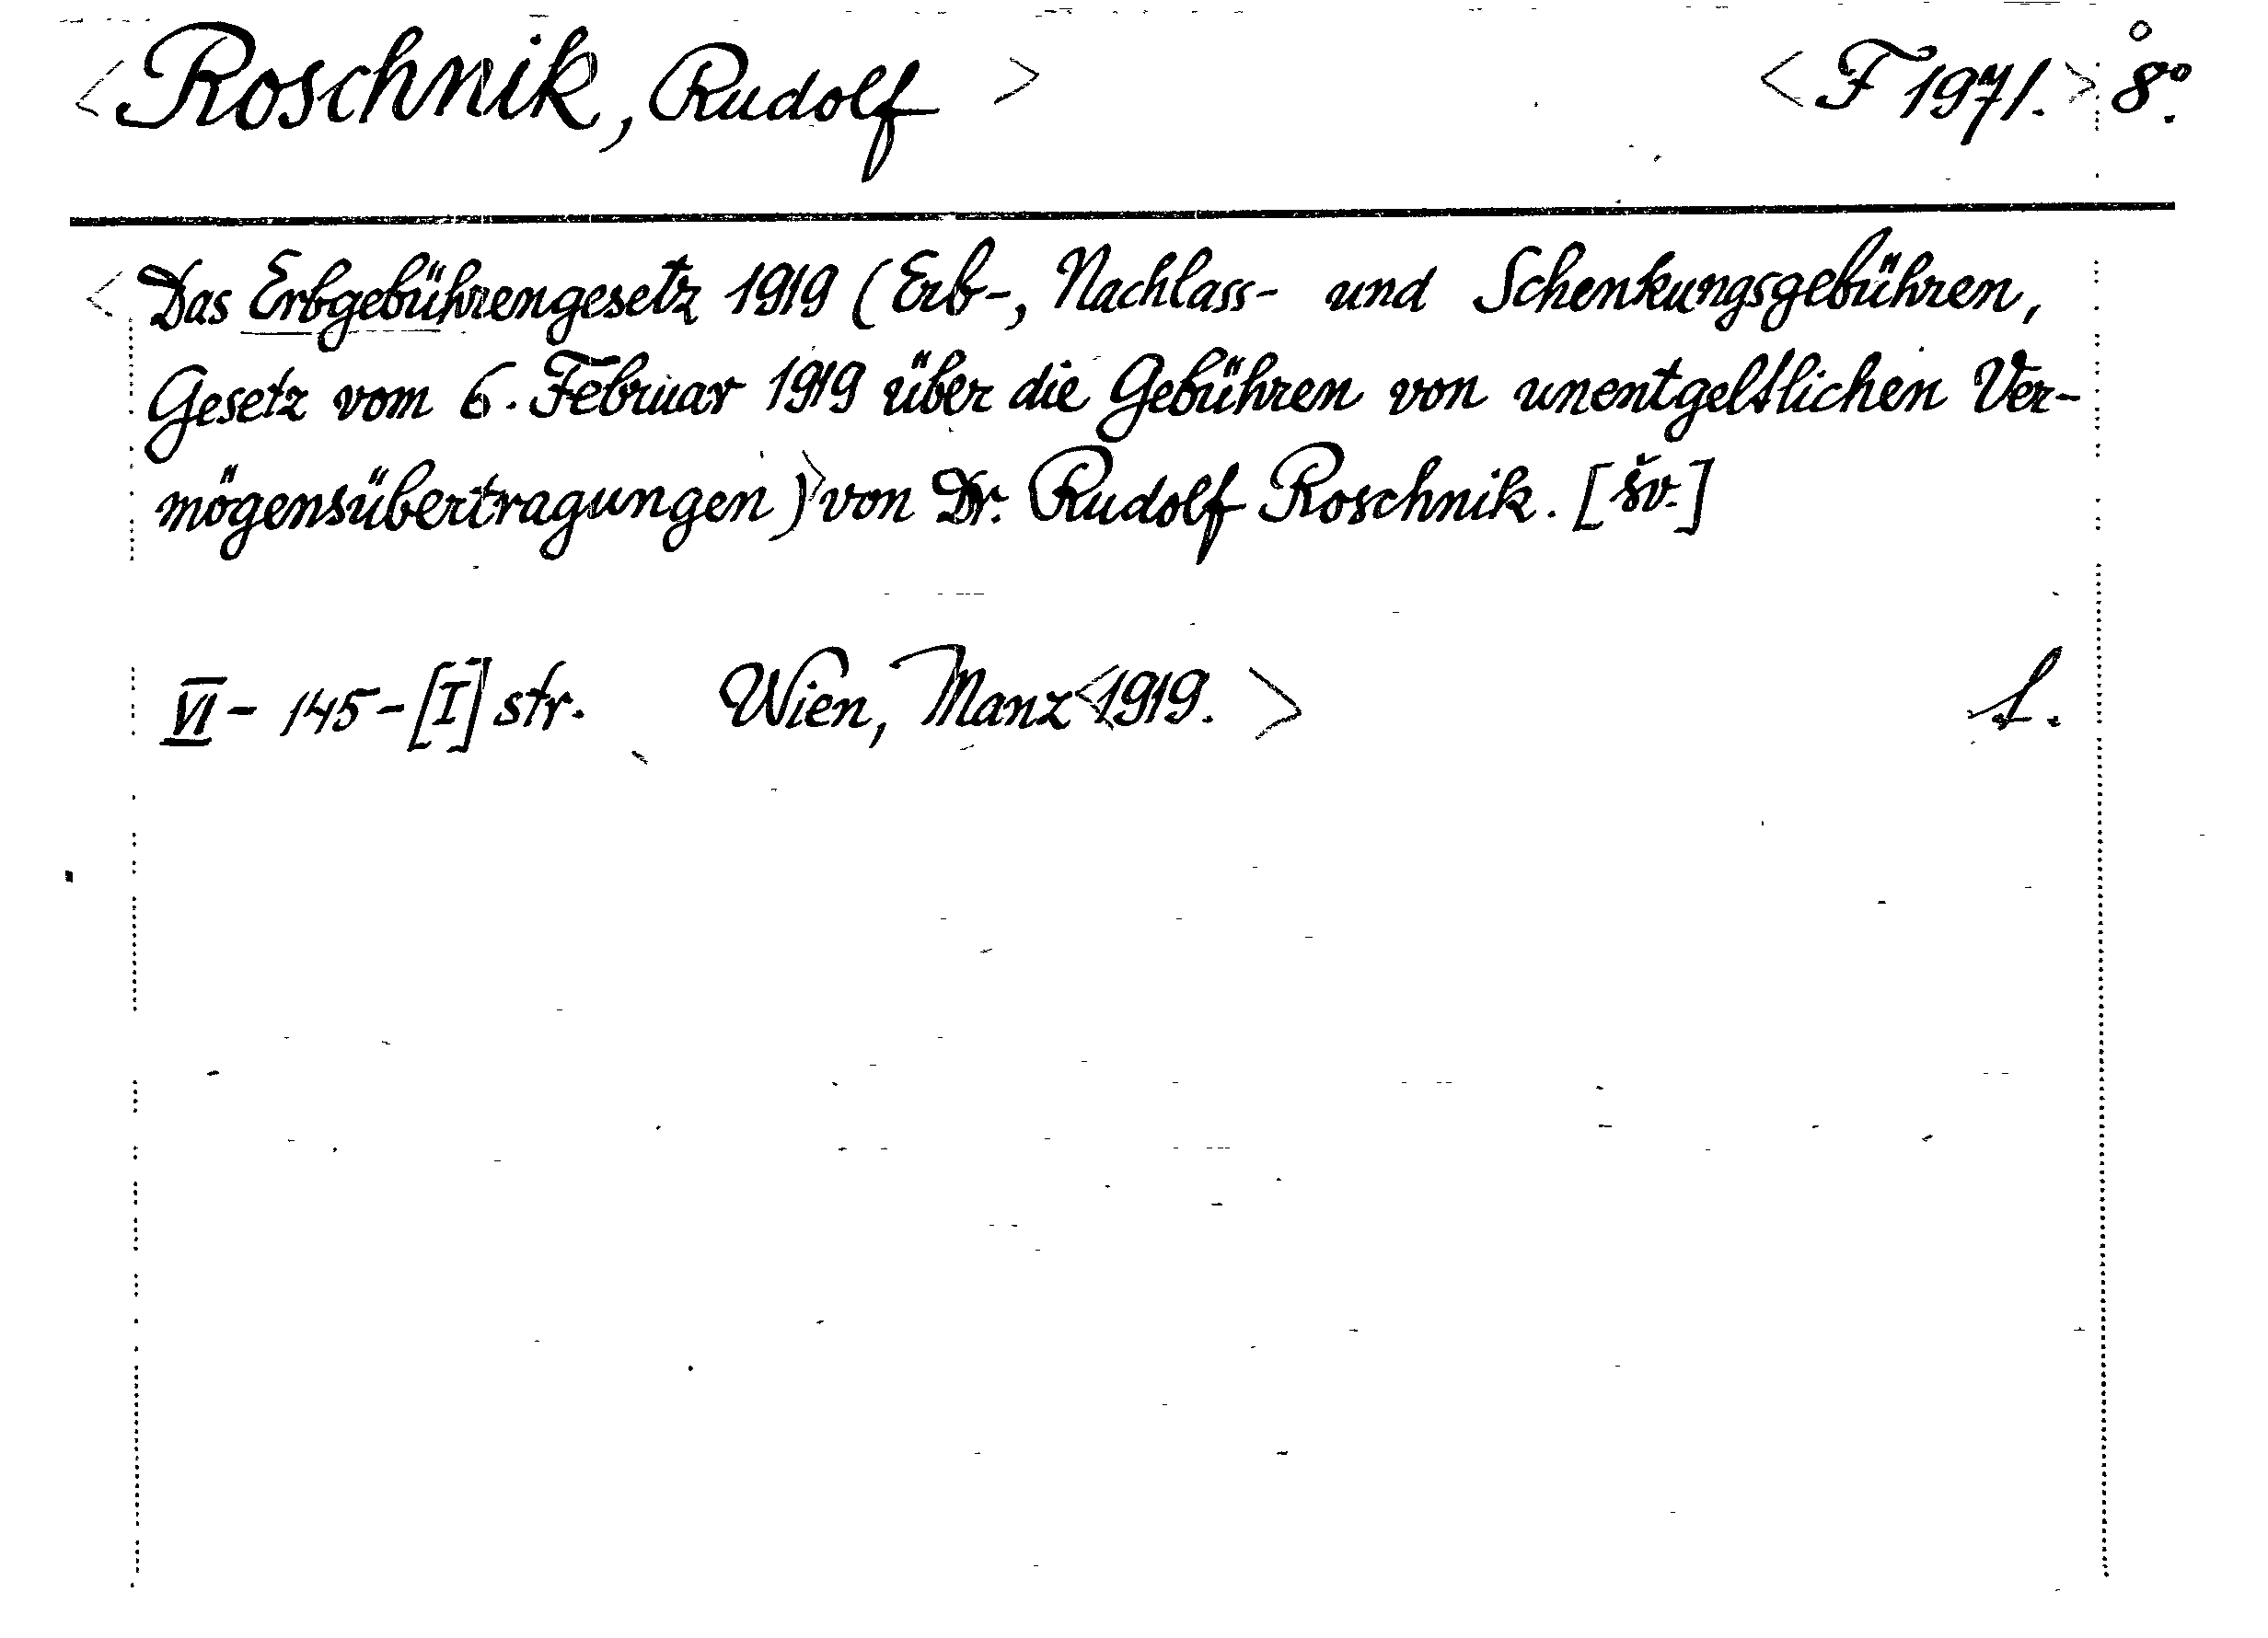 <Roschnik, Rudolf> <F 1971.> 8°.
<Das Erbgebührengesetz 1919 (Erb-, Nachlass- und Schenkungsgebühren,
Gesetz vom 6. Februar 1919 über die Gebühren von unentgeltlichen Ver-
mögensübertragungen)> von Dr. Rudolf Roschnik. [šv.]
VI - 145 - [I] str. Wien, Manz <1919.>